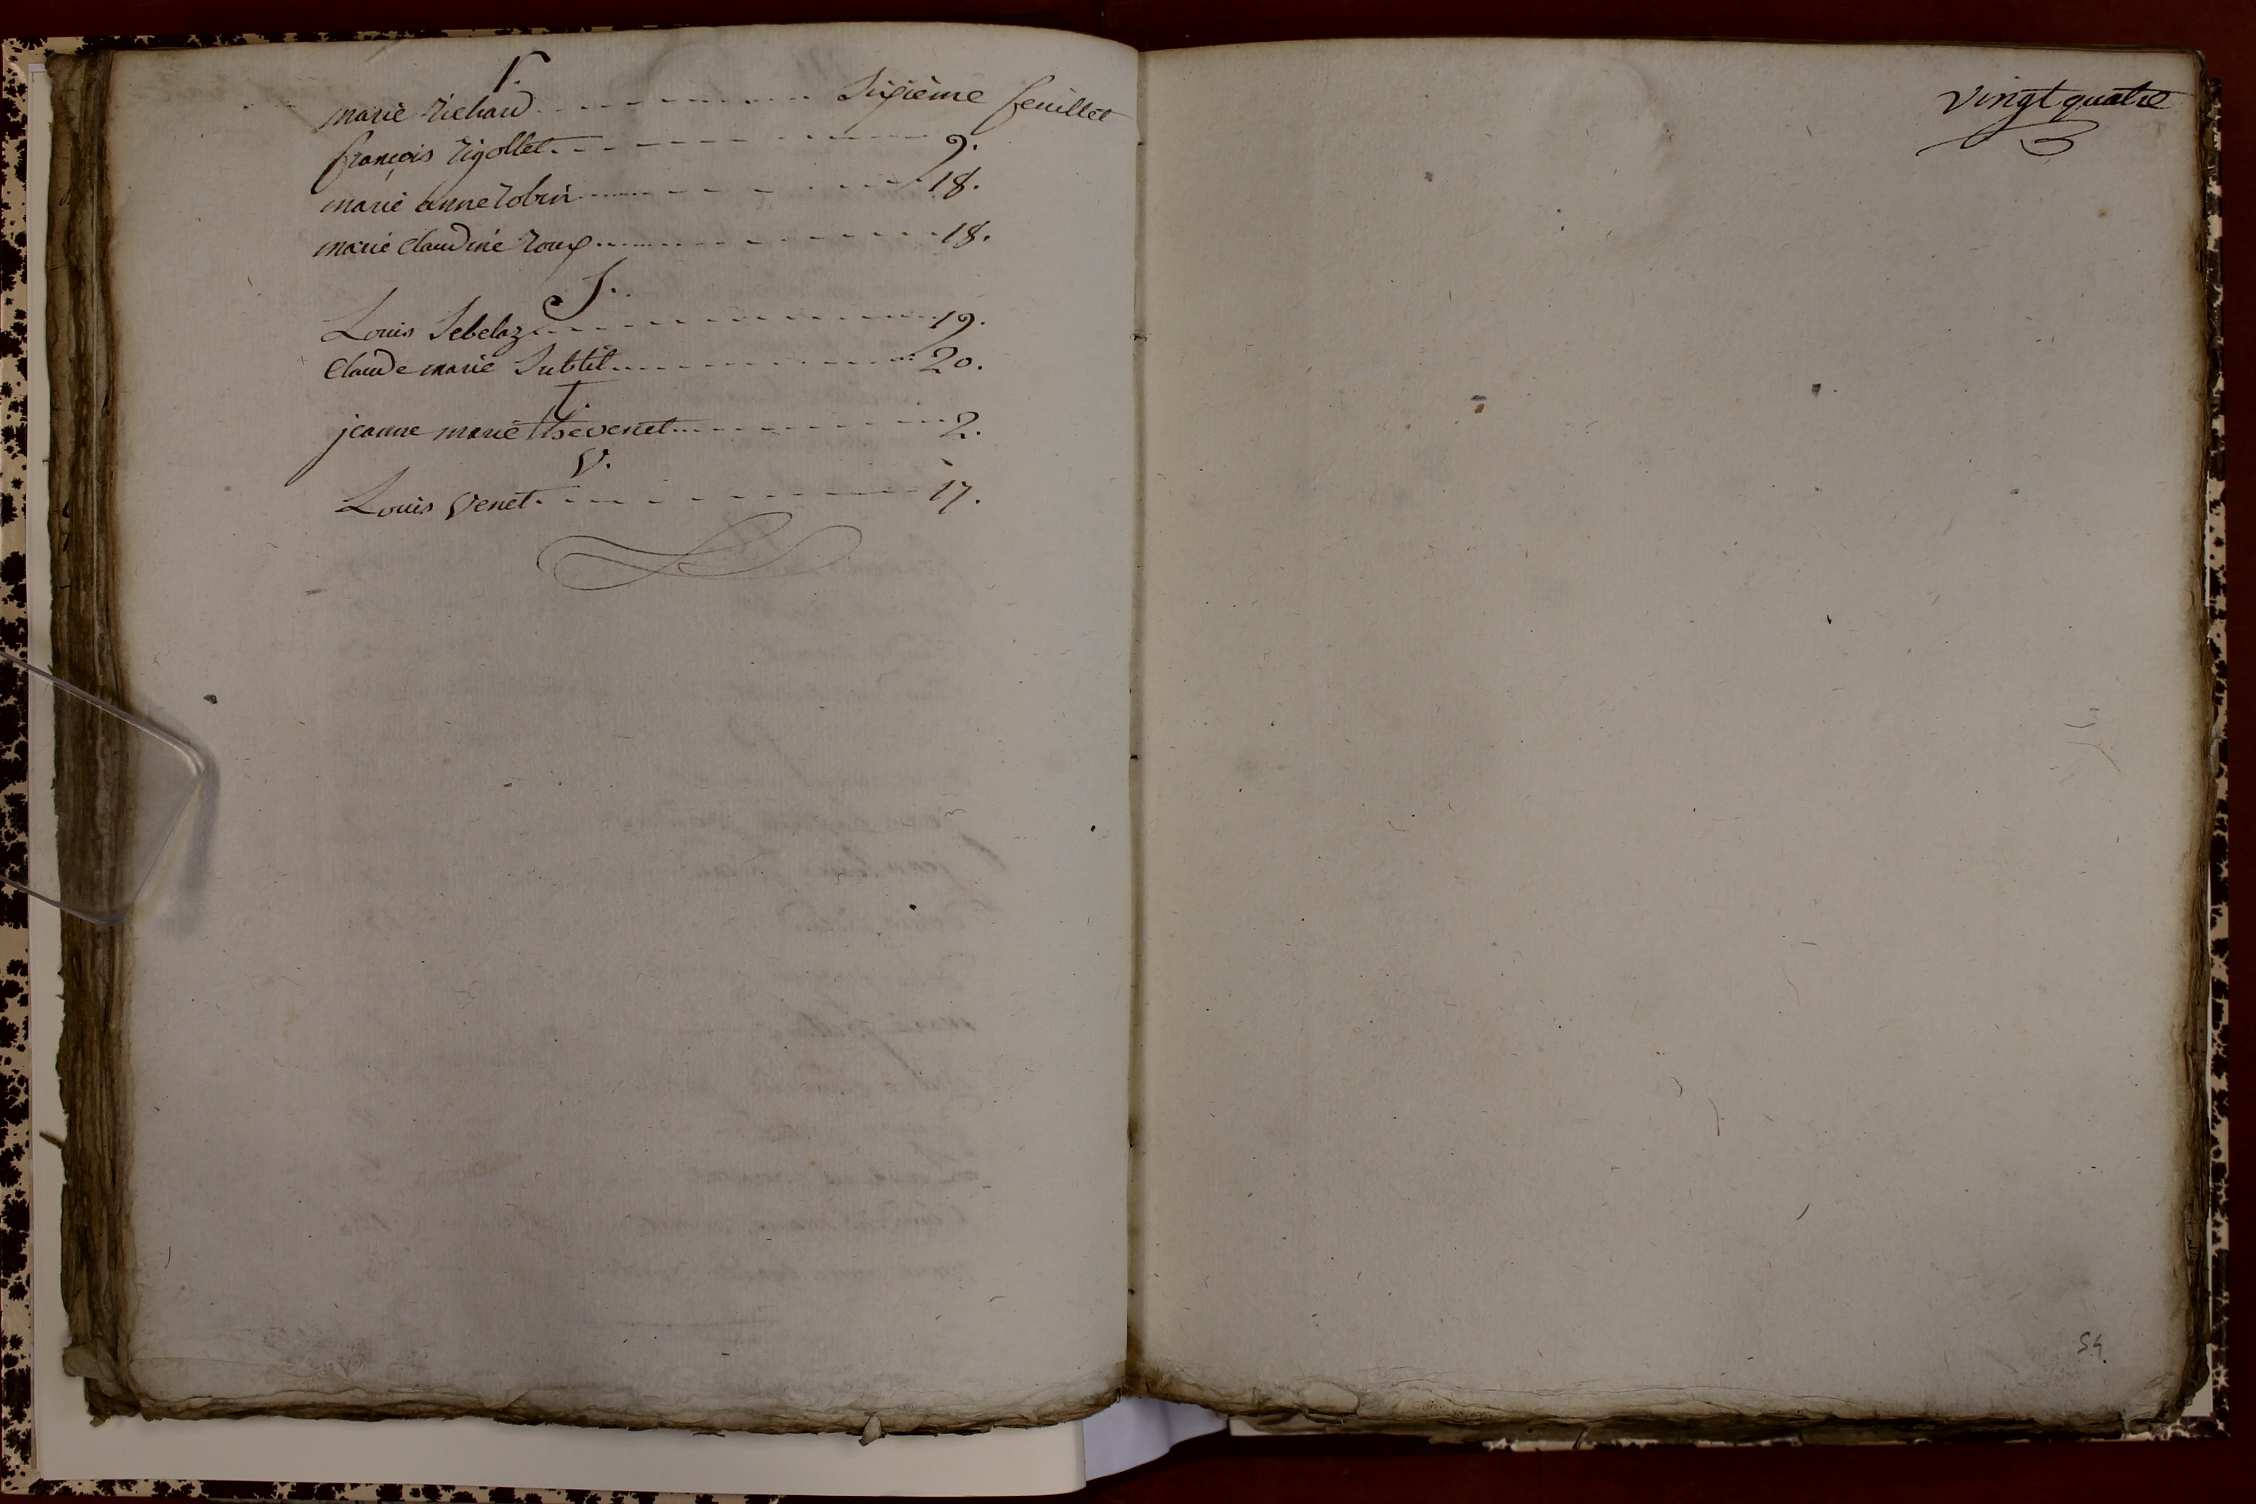 r.
marie richard - - - - - - - - - - - Sixième feuillet
françois rigollet - - - - - - - - - - - 9.
marie anne robin - - - - - - - - - - - 18.
marie Claudine roux - - - - - - - - - - - 18.
S.
Louis Sebelaz - - - - - - - - - - - 19.
Claude marie Subtil - - - - - - - - - - - 20.
T.
jeanne marie thevenet - - - - - - - - - - - 2.
V.
Louis Venet - - - - - - - - - - - 17.
vingt quatre
54